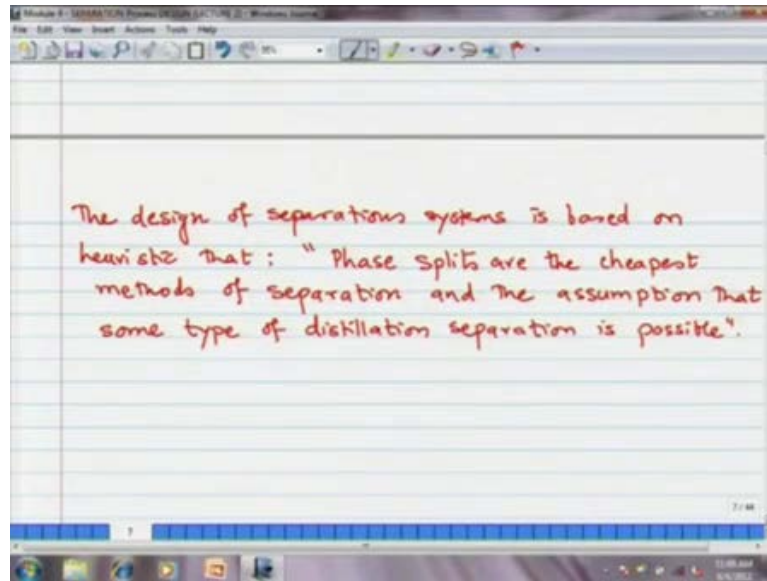 Module 4 - SEPARATION Process DESIGN (LECTURE 2) - Windows Journal
File Edit View Insert Actions Tools Help
The design of separations systems is based on
heuristic that : " Phase splits are the cheapest
methods of separation and the assumption that
some type of distillation separation is possible".
7 / 44
7